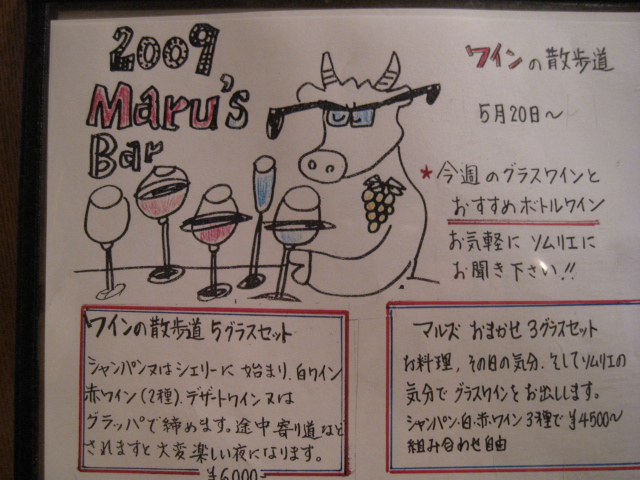 2009
Maru's
Bar
ワインの散歩道
5月20日～
★今週のグラスワインと
おすすめボトルワイン
お気軽に ソムリエに
お聞き下さい!!
ワインの散歩道 5グラスセット
シャンパン又はシェリーに 始まり、白ワイン
赤ワイン(2種)、デザートワイン又は
グラッパで締めます。途中 寄り道など
されますと 大変 楽しい夜になります。
¥6000-
マルズ おまかせ 3グラスセット
お料理、その日の気分、そしてソムリエの
気分で グラスワインとお出しします。
シャンパン・白・赤・ワイン 3種で ¥4500～
組み合わせ自由